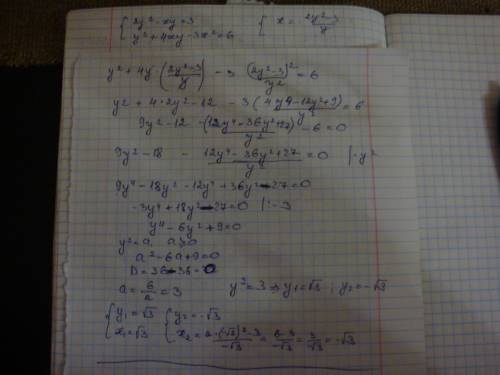 { 2y² - xy = 3 { x = (2y² - 3)/y
{ y² + 4xy - 3x² = 6
y² + 4y · ((2y² - 3)/y) - 3 (2y² - 3)²/y² = 6
y² + 4·2y² - 12 - 3(4y⁴ - 12y² + 9)/y² = 6
9y² - 12 - (12y⁴ - 36y² + 27)/y² - 6 = 0
9y² - 18 - (12y⁴ - 36y² + 27)/y² = 0 |·y²
9y⁴ - 18y² - 12y⁴ + 36y² - 27 = 0
-3y⁴ + 18y² - 27 = 0 |:-3
y⁴ - 6y² + 9 = 0
y² = a, a ≥ 0
a² - 6a + 9 = 0
D = 36 - 36 = 0
a = 6/2 = 3 y² = 3 ⇒ y₁ = √3 ; y₂ = -√3
{ y₁ = √3 { y₂ = -√3
{ x₁ = √3 { x₂ = (2·(-√3)² - 3)/(-√3) = (6 - 3)/(-√3) = 3/(-√3) = -√3